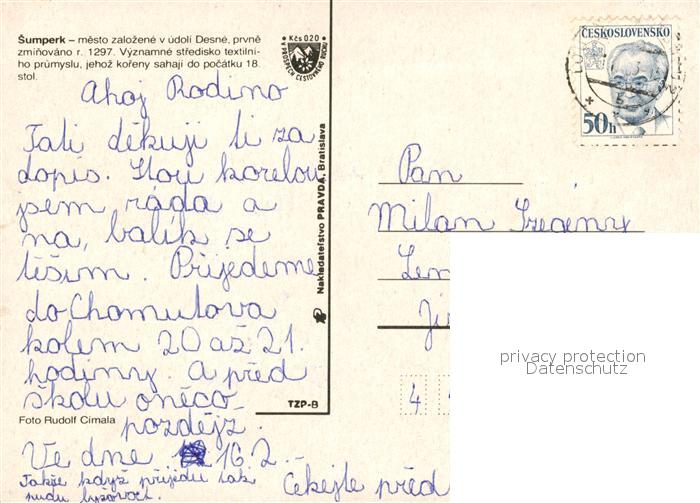 Šumperk – město založené v údolí Desné, prvně
zmiňováno r. 1297. Významné středisko textilní-
ho průmyslu, jehož kořeny sahají do počátku 18.
stol.
Kčs 0,20
V PROSPĚCH CESTOVNÍHO RUCHU
ČESKOSLOVENSKO
50h
Ahoj Rodino
Tati děkuji ti za
dopis. Stou korelou
jsem ráda a
na, balík se
těším. Přijedeme
do Chomutova
kolem 20 až 21.
hodinny. A před
školu oněco
pozdějz.
Ve dne 16 2.
Takže když přijedu tak
pudu
Čekejte před
Foto Rudolf Cimala
TZP-B
Nakladateľstvo PRAVDA, Bratislava
Pan
Milan
Len
Ji
4
privacy protection
Datenschutz